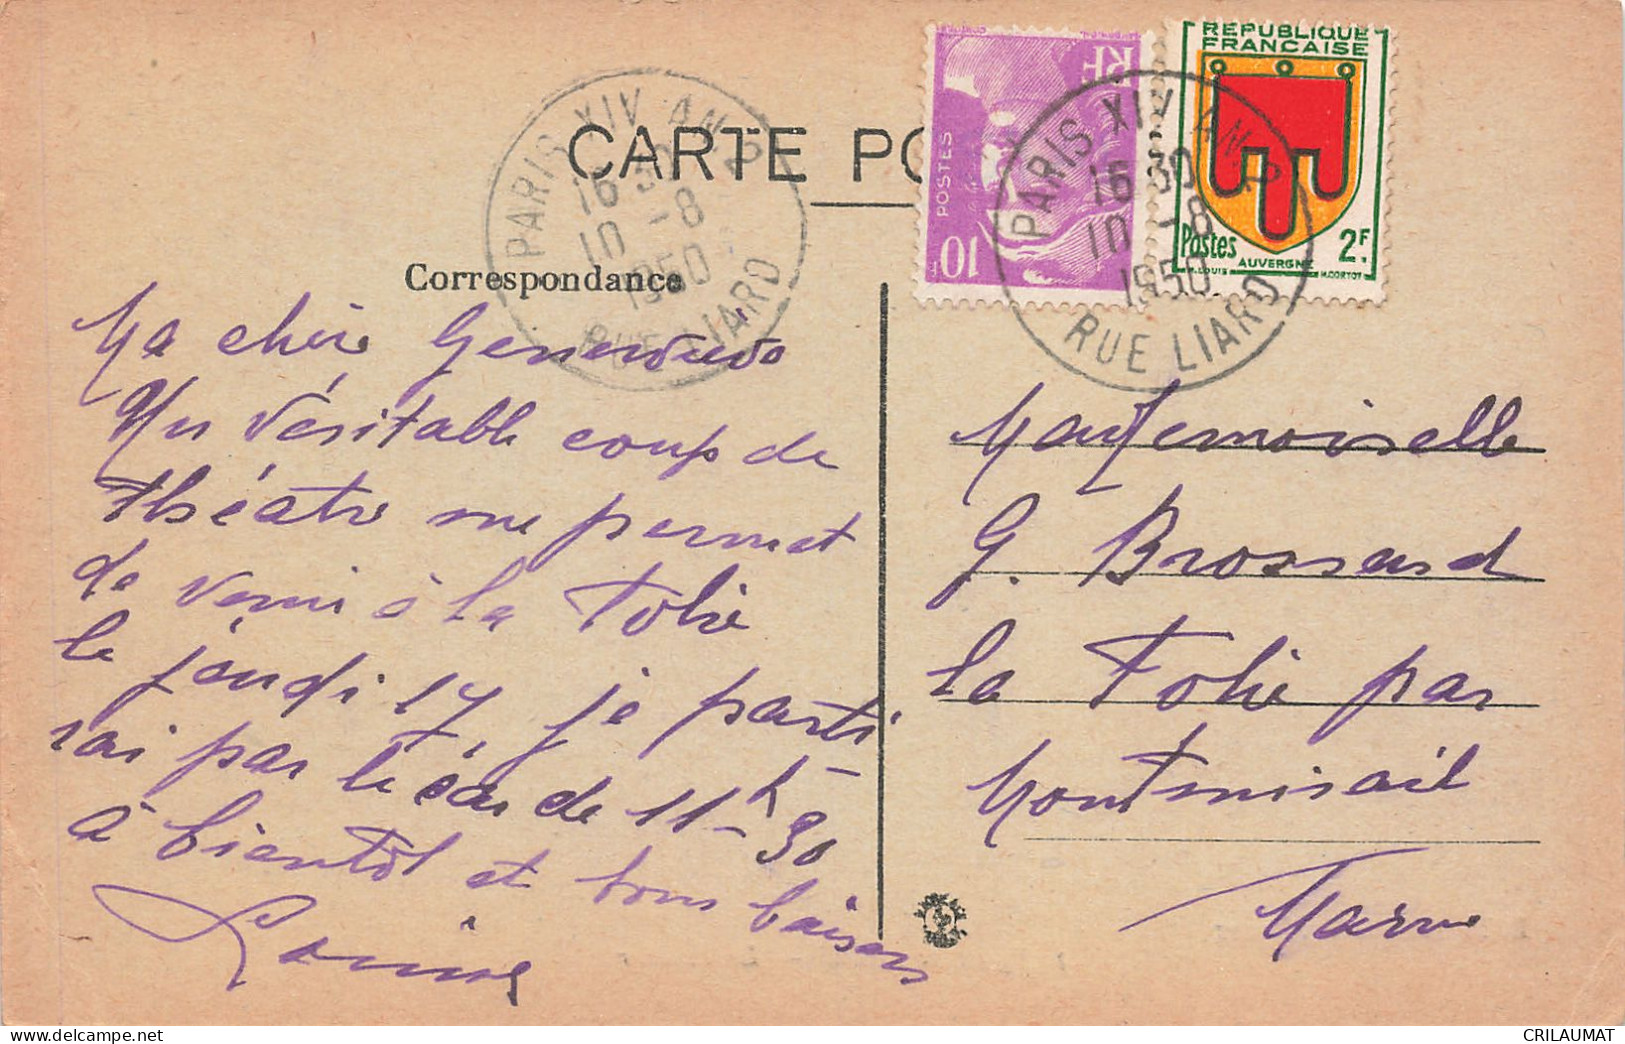 CARTE PO
Correspondance
PARIS XIV AN. 2
16 30
10 -8
1950
RUE LIARD
RF
POSTES
10F
REPUBLIQUE
FRANCAISE
Postes 2F.
AUVERGNE
H.CORTOT
PARIS XIV AN. 2
16 30
10 -8
1950
RUE LIARD
Ma chère Geneviève
Un véritable coup de
théâtre me permet
de venir à la Folie
le jeudi 17, je parti-
rai par le car de 11h30
à bientôt et bons baisers
Louise
Mademoiselle
G. Brossard
La Folie par
Montmirail
Marne
CRILAUMAT